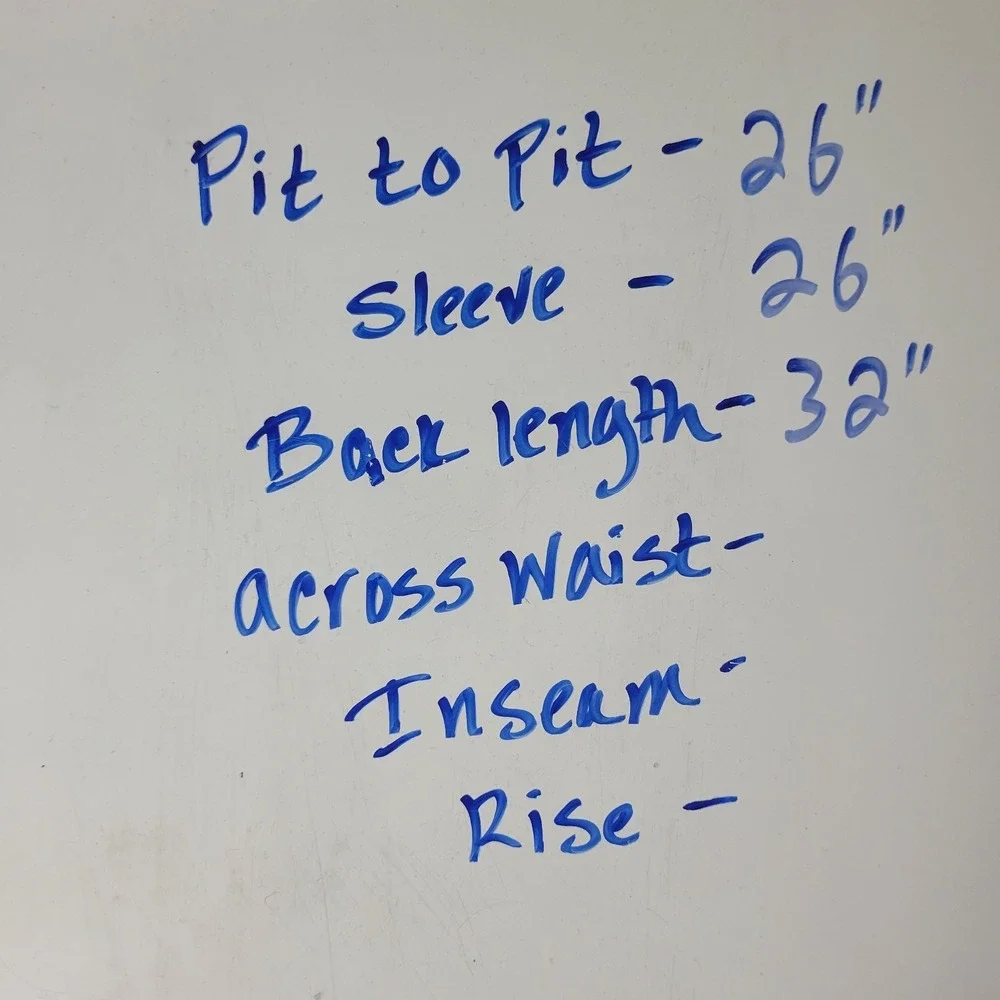 Pit to Pit - 26"
Sleeve - 26"
Back length - 32"
across Waist -
Inseam -
Rise -